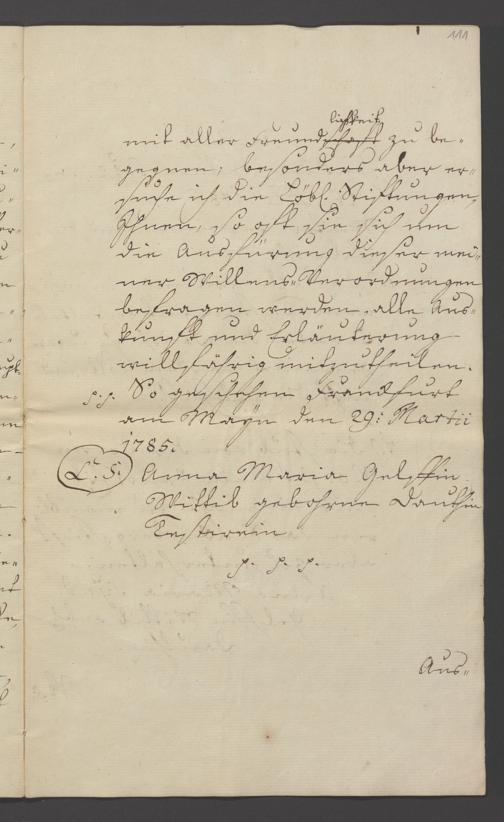 111
lichkeit
mit aller Freundschaft zu be-
gegnen; besonders aber er-
suche ich die Löbl. Stiftungen,
Ihnen, so oft sie sich um
die Ausführung dieser mei-
ner Willens-Verordnungen
befragen werden, alle Aus-
kunfft und Erläuterung
willfährig mitzutheilen.
So geschehen Franckfurt
am Mayn den 29: Martii
1785.
L. S. Anna Maria Gelffin
Wittib gebohrne Dauthin
Testirerin
Aus-